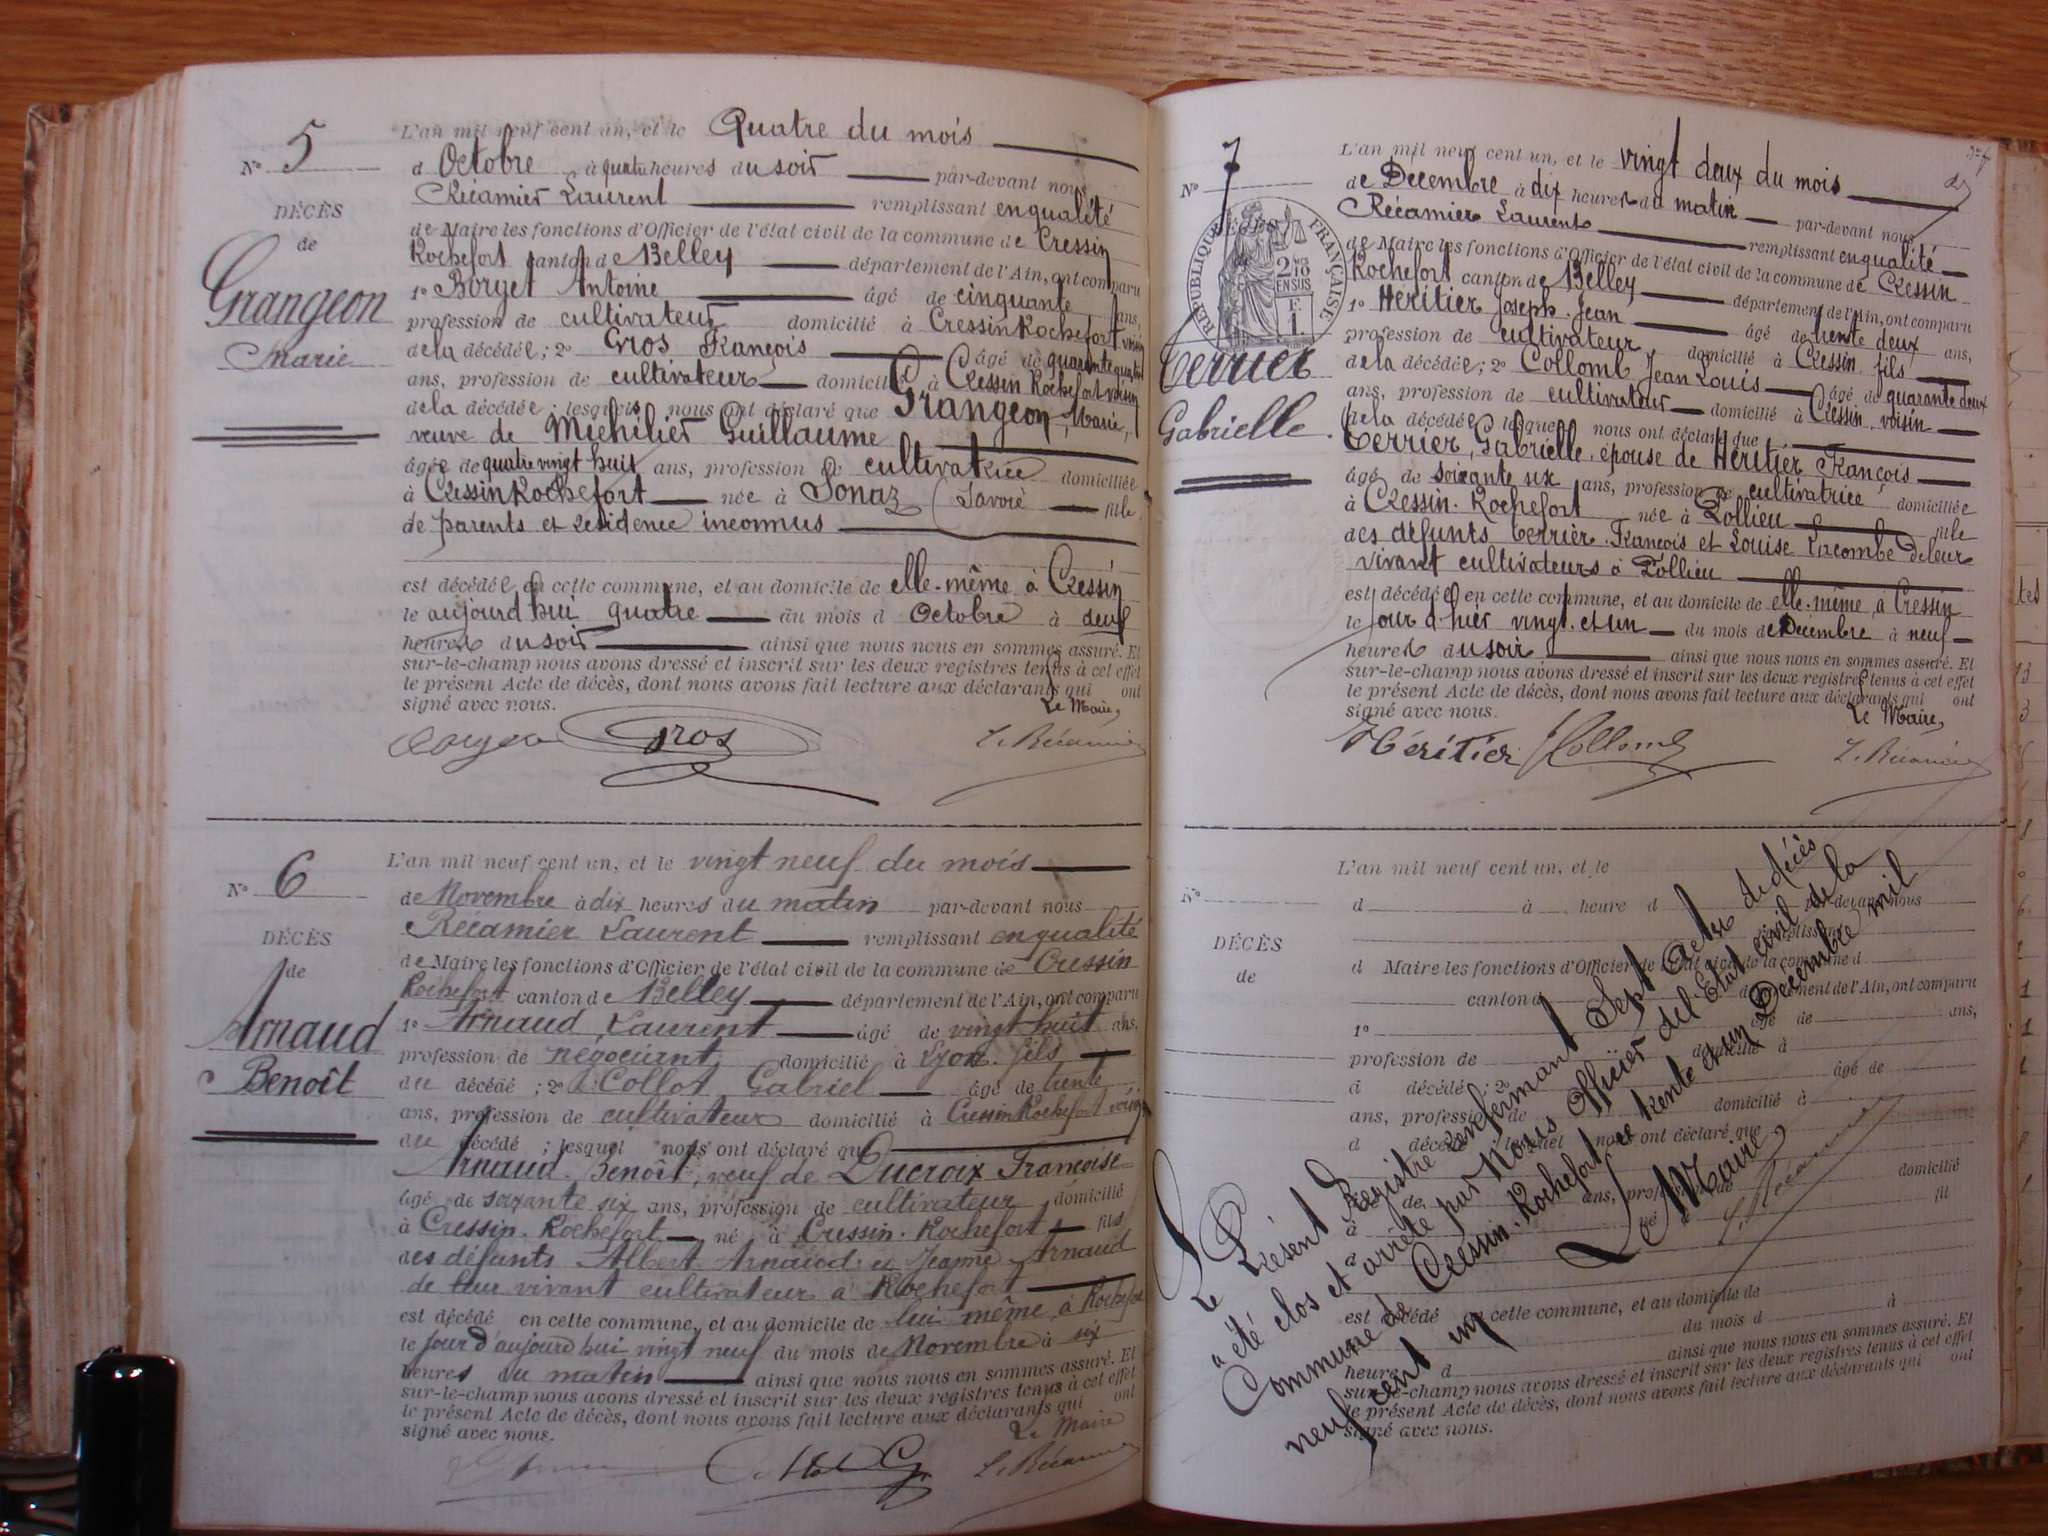 N° 5
DÉCÈS
de
Grangeon
Marie
L'an mil neuf cent un, et le Quatre du mois
d Octobre à quatre heures du soir par-devant nous
Récamier Laurent remplissant en qualité
de Maire les fonctions d'Officier de l'état civil de la commune de Cressin
Rochefort canton de Belley département de l'Ain, ont comparu
1° Borget Antoine âgé de cinquante ans,
profession de cultivateur domicilié à Cressin Rochefort voisin
de la décédée; 2° Gros François âgé de quarante quatre
ans, profession de cultivateur domicilié à Cressin Rochefort voisin
de la décédée; lesquels nous ont déclaré que Grangeon, Marie,
veuve de Michilier Guillaume
âgée de quatre vingt huit ans, profession de cultivatrice domiciliée
à Cressin Rochefort née à Sonaz (Savoie fille
de parents et residence inconnus
est décédée en cette commune, et au domicile de elle-même à Cressin
le aujourd'hui quatre du mois d Octobre à
heures du soir ainsi que nous nous en sommes assuré. Et
sur-le-champ nous avons dressé et inscrit sur les deux registres tenus à cet effet
le présent Acte de décès, dont nous avons fait lecture aux déclarants qui ont
signé avec nous. Le Maire,
Gros L. Récamier
N° 6
DÉCÈS
de
Arnaud
Benoît
L'an mil neuf cent un, et le vingt neuf du mois
de Novembre à dix heures du matin par-devant nous
Récamier Laurent remplissant en qualité
de Maire les fonctions d'Officier de l'état civil de la commune de Cressin
Rochefort canton de Belley département de l'Ain, ont comparu
1° Arnaud, Laurent âgé de vingt huit ans,
profession de négociant domicilié à Lyon. fils
du décédé; 2° Collot Gabriel âgé de trente
ans, profession de cultivateur domicilié à Cressin Rochefort voisin
du décédé; lesquel nous ont déclaré que
Arnaud Benoît, veuf de Ducroix Françoise
âgé de soixante six ans, profession de cultivateur domicilié
à Cressin. Rochefort né à Cressin. Rochefort fils
des défunts Albert Arnaud et Jeanne Arnaud
de leur vivant cultivateur à Rochefort
est décédé en cette commune, et au domicile de lui même, à Rochefort
le jour d'aujourd'hui vingt neuf du mois de Novembre à six
heures du matin ainsi que nous nous en sommes assuré. Et
sur-le-champ nous avons dressé et inscrit sur les deux registres tenus à cet effet
le présent Acte de décès, dont nous avons fait lecture aux déclarants qui ont
signé avec nous. Le Maire
L. Récamier
N° 7
RÉPUBLIQUE FRANÇAISE
2/10 EN SUS
F. 1.
Terrier
Gabrielle.
L'an mil neuf cent un, et le vingt deux du mois
de Decembre à dix heures du matin par-devant nous
Récamier Laurent remplissant en qualité
de Maire les fonctions d'Officier de l'état civil de la commune de Cressin
Rochefort canton de Belley département de l'Ain, ont comparu
1° Héritier Joseph Jean âgé de trente deux ans,
profession de cultivateur domicilié à Cressin fils
de la décédée; 2° Collomb Jean Louis âgé de quarante deux
ans, profession de cultivateur domicilié à Cressin. voisin
de la décédée lesquels nous ont déclaré que
Terrier, Gabrielle, epouse de Héritier François
âgé de soixante six ans, profession de cultivatrice domiciliée
à Cressin. Rochefort née à Pollieu fille
des défunts Terrier. François et Louise Lacombe de leur
vivant cultivateurs à Pollieu
est décédée en cette commune, et au domicile de elle-même, à Cressin
le jour d'hier vingt et un du mois de Décembre à neuf
heures du soir ainsi que nous nous en sommes assuré. Et
sur-le-champ nous avons dressé et inscrit sur les deux registres tenus à cet effet
le présent Acte de décès, dont nous avons fait lecture aux déclarants qui ont
signé avec nous. Le Maire,
Héritier Collomb L. Récamier
N°
DÉCÈS
de
L'an mil neuf cent un, et le
d à heure d par-devant nous
remplissant
d Maire les fonctions d'Officier de l'état civil de la commune d
canton d département de l'Ain, ont comparu
1° âgé de ans,
profession de domicilié à
d décédé; 2° âgé de
ans, profession de domicilié à
d décédé lesquel nous ont déclaré que
âgé de ans, profession de domicilié
à né à fil
d
est décédé en cette commune, et au domicile de
le du mois d à
heure d ainsi que nous nous en sommes assuré. Et
sur-le-champ nous avons dressé et inscrit sur les deux registres tenus à cet effet
le présent Acte de décès, dont nous avons fait lecture aux déclarants qui ont
signé avec nous.
Le Présent Registre renfermant Sept Actes de décès
a été clos et arrêté par Nous Officier de l'Etat civil de la
Commune de Cressin. Rochefort le trente et un Décembre mil
neuf cent un
Le Maire,
L. Récamier